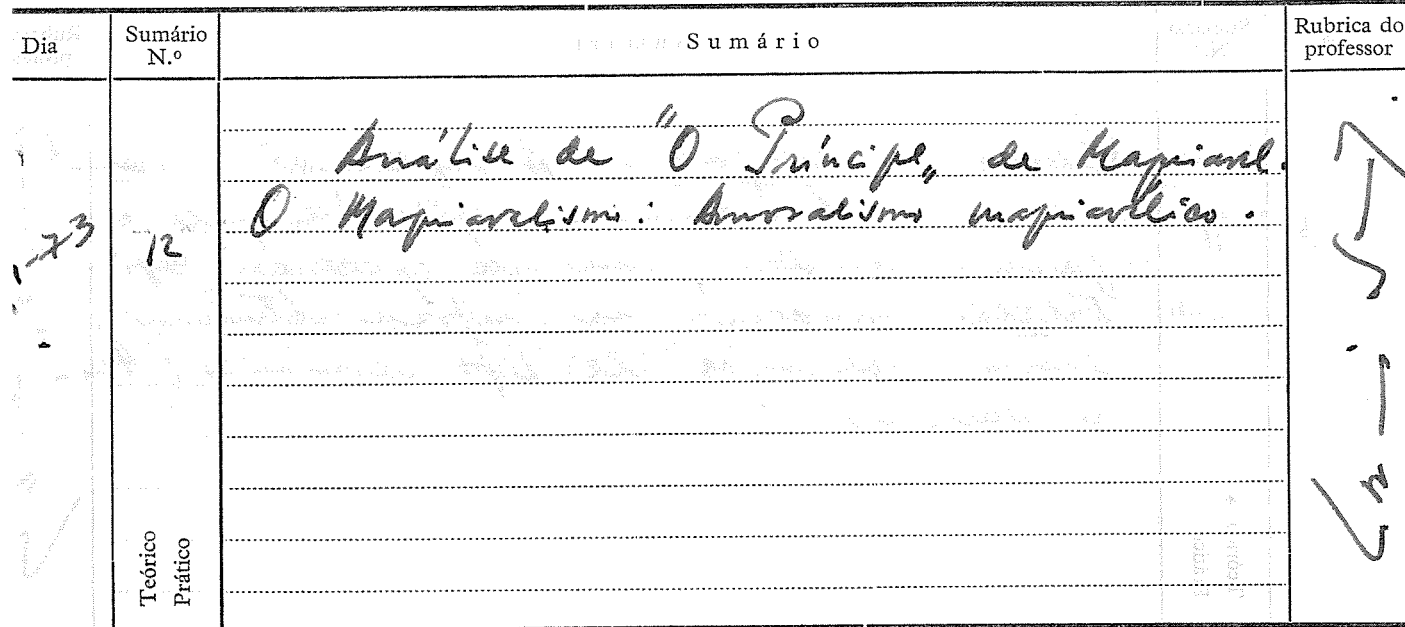 Dia
Sumário N.º
Sumário
Rubrica do professor
Análise de "O Príncipe„ de Maquiavel.
O Maquiavelismo: Amoralismo maquiavélico.
-73
12
Teórico
Prático